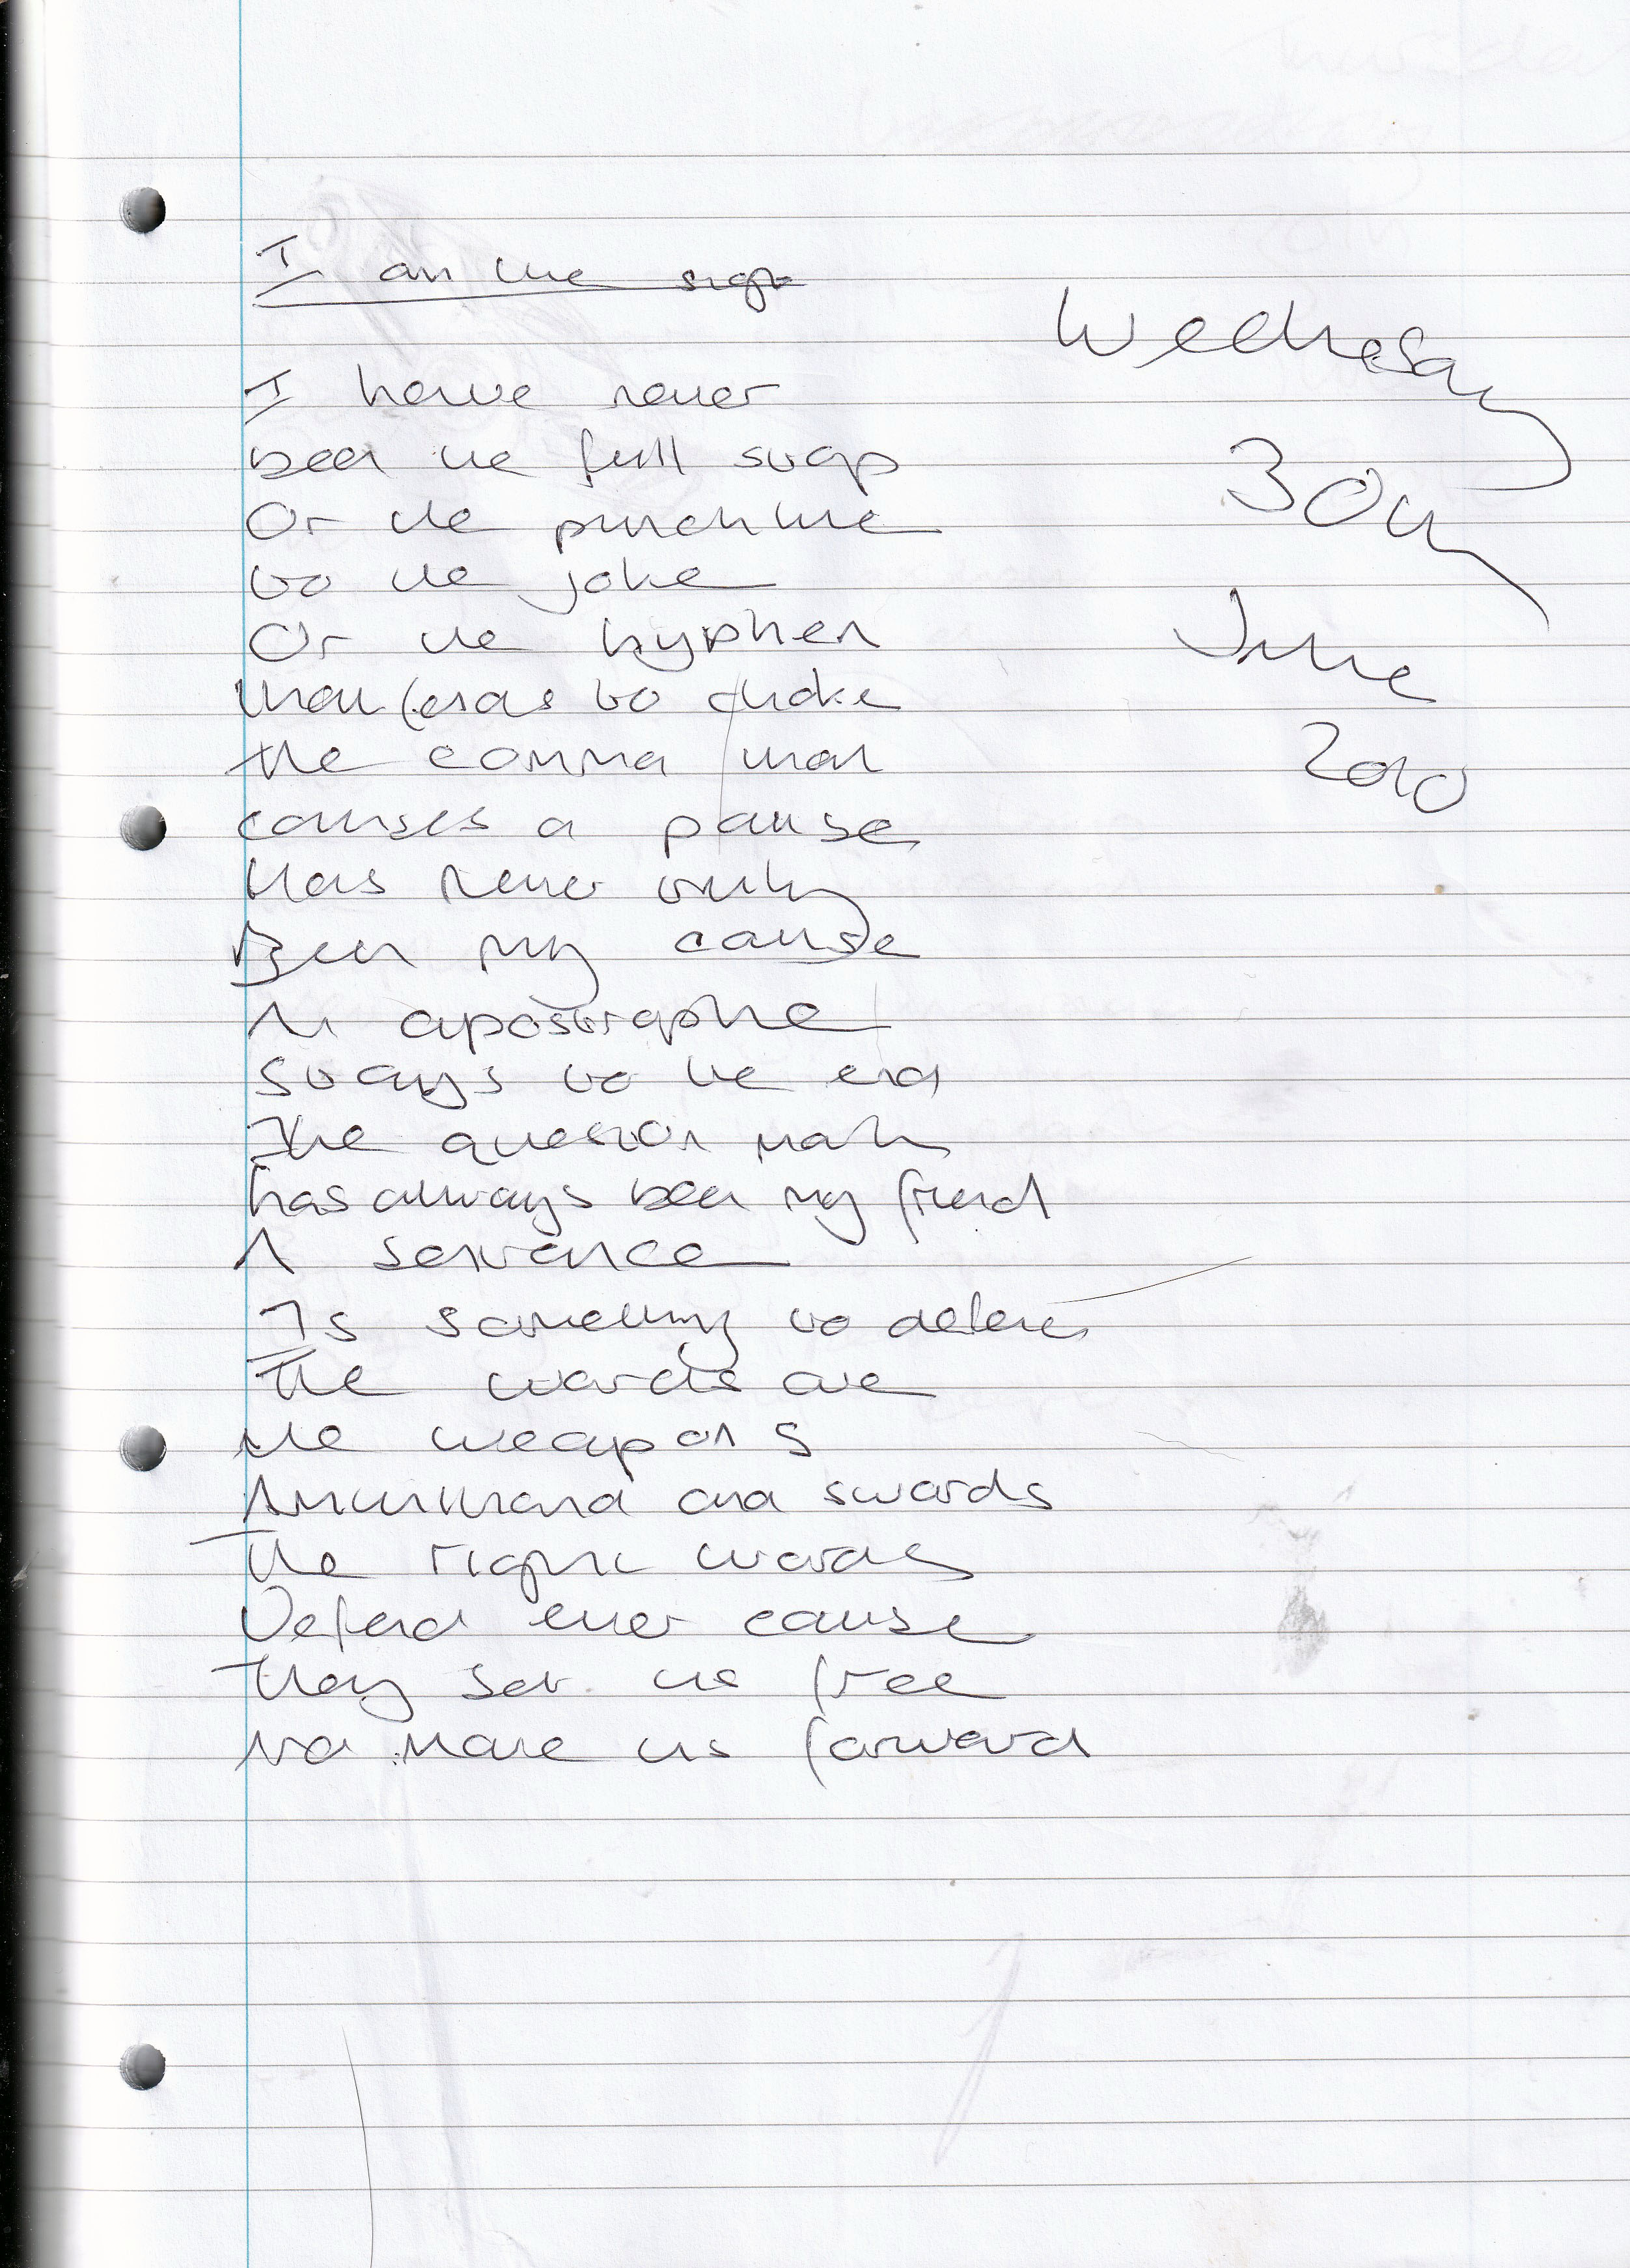 I am the sign
Wednesday
30th
June
2010
I have never
been the full stop
Or the punchline
to the joke
Or the hyphen
that leads to choke
the comma that
causes a pause
Has never truly
Been my cause
An apostrophe
Stays to the end
The question mark
has always been my friend
A sentence
Is something to defend
The words are
the weapons
Ammunition and swords
The right words
Defend ever cause
They set us free
And move us forward